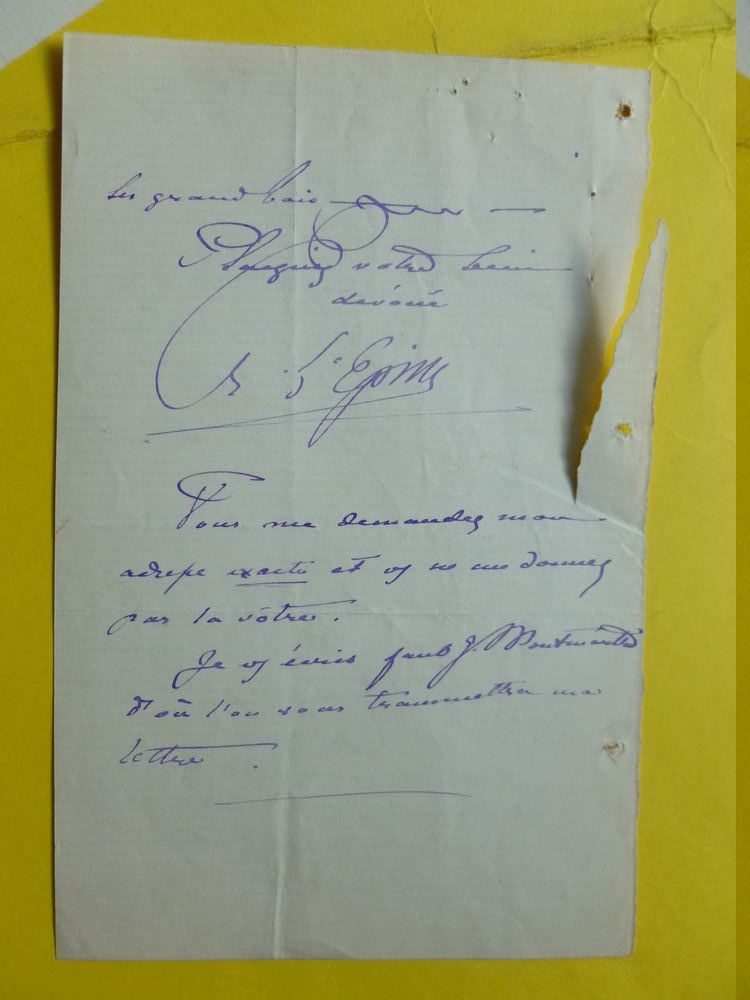 les grand bois
votre bien
dévoué
Vous me demandez mon
adresse exacte et vs ne me donnez
pas la vôtre.
Je vs écris faub g. Montmartre
d'où l'on vous transmettra ma
lettre.